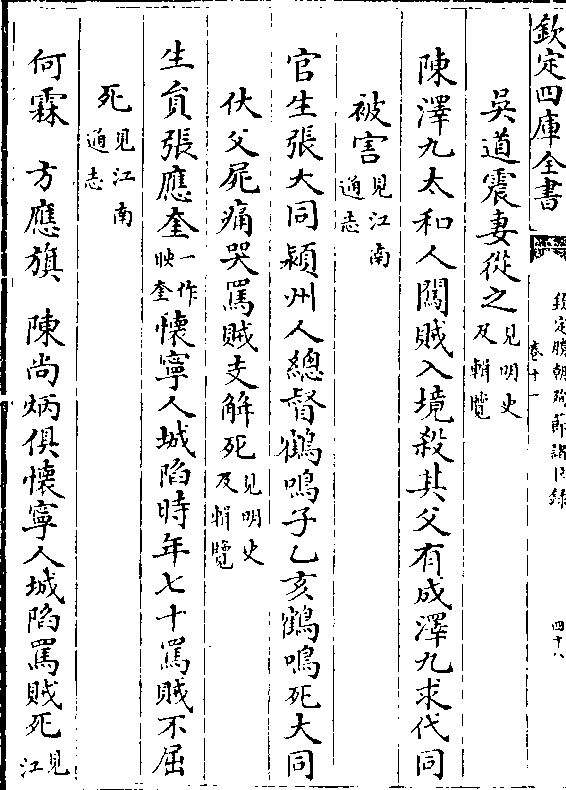 欽定四庫全書
欽定勝朝殉節諸臣錄
卷十一
四十八
吳道震妻從之見明史及輯覽
陳澤九太和人闖賊入境殺其父有成澤九求代同
被害見江南通志
官生張大同潁州人總督鶴鳴子乙亥鶴鳴死大同
伏父屍痛哭罵賊支解死見明史及輯覽
生員張應奎一作映奎懷寧人城陷時年七十罵賊不屈
死見江南通志
何霖 方應旗 陳尚炳俱懷寧人城陷罵賊死見江